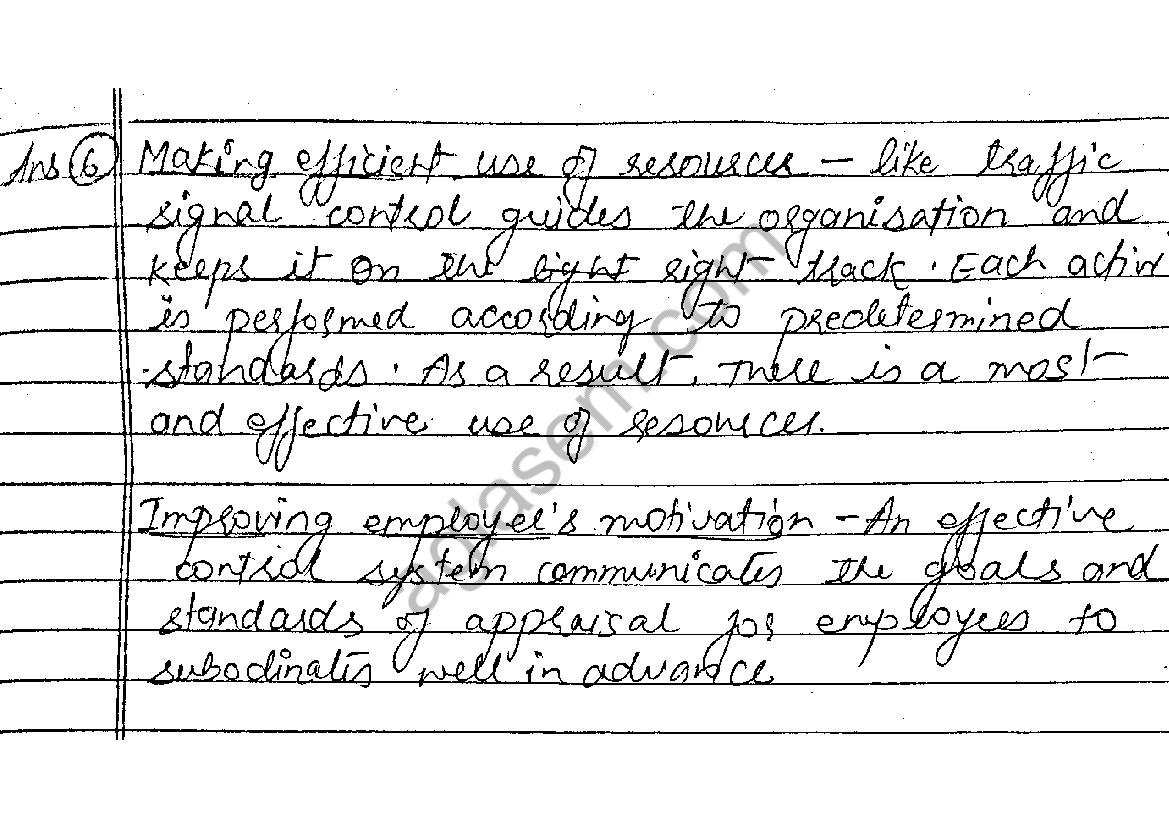 Ans 6 Making efficient use of resources – like traffic
signal control guides the organisation and
keeps it on the light right track. Each activi
is performed according to predetermined
standards. As a result, there is a most
and effective use of resources.
Improving employee's motivation – An effective
control system communicates the goals and
standards of appraisal for employees to
subodinates well in advance
aglasem.com